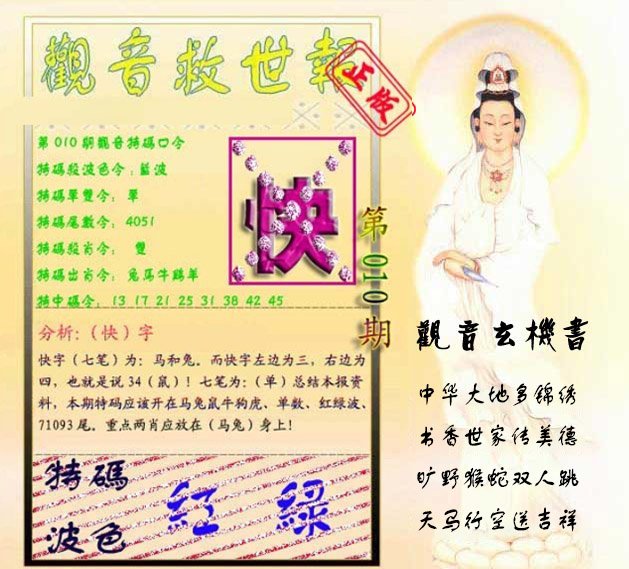 觀音救世報
正版
第010期觀音特碼口令
特碼殺波色令：藍波
特碼單雙令：單
特碼尾數令：4051
特碼殺肖令： 雙
特碼出肖令：兔馬牛鷄羊
特中碼令：13 17 21 25 31 38 42 45
快
第010期
分析:（快）字
快字（七笔）为：马和兔。而快字左边为三，右边为
四，也就是说 34（鼠）！七笔为:（单）总结本报资
料，本期特码应该开在马兔鼠牛狗虎、单数、红綠波、
71093 尾。重点两肖应放在（马兔）身上！
特碼
波色
紅 綠
觀音玄機書
中华大地多锦绣
书香世家传美德
旷野猴蛇双人跳
天马行空送吉祥